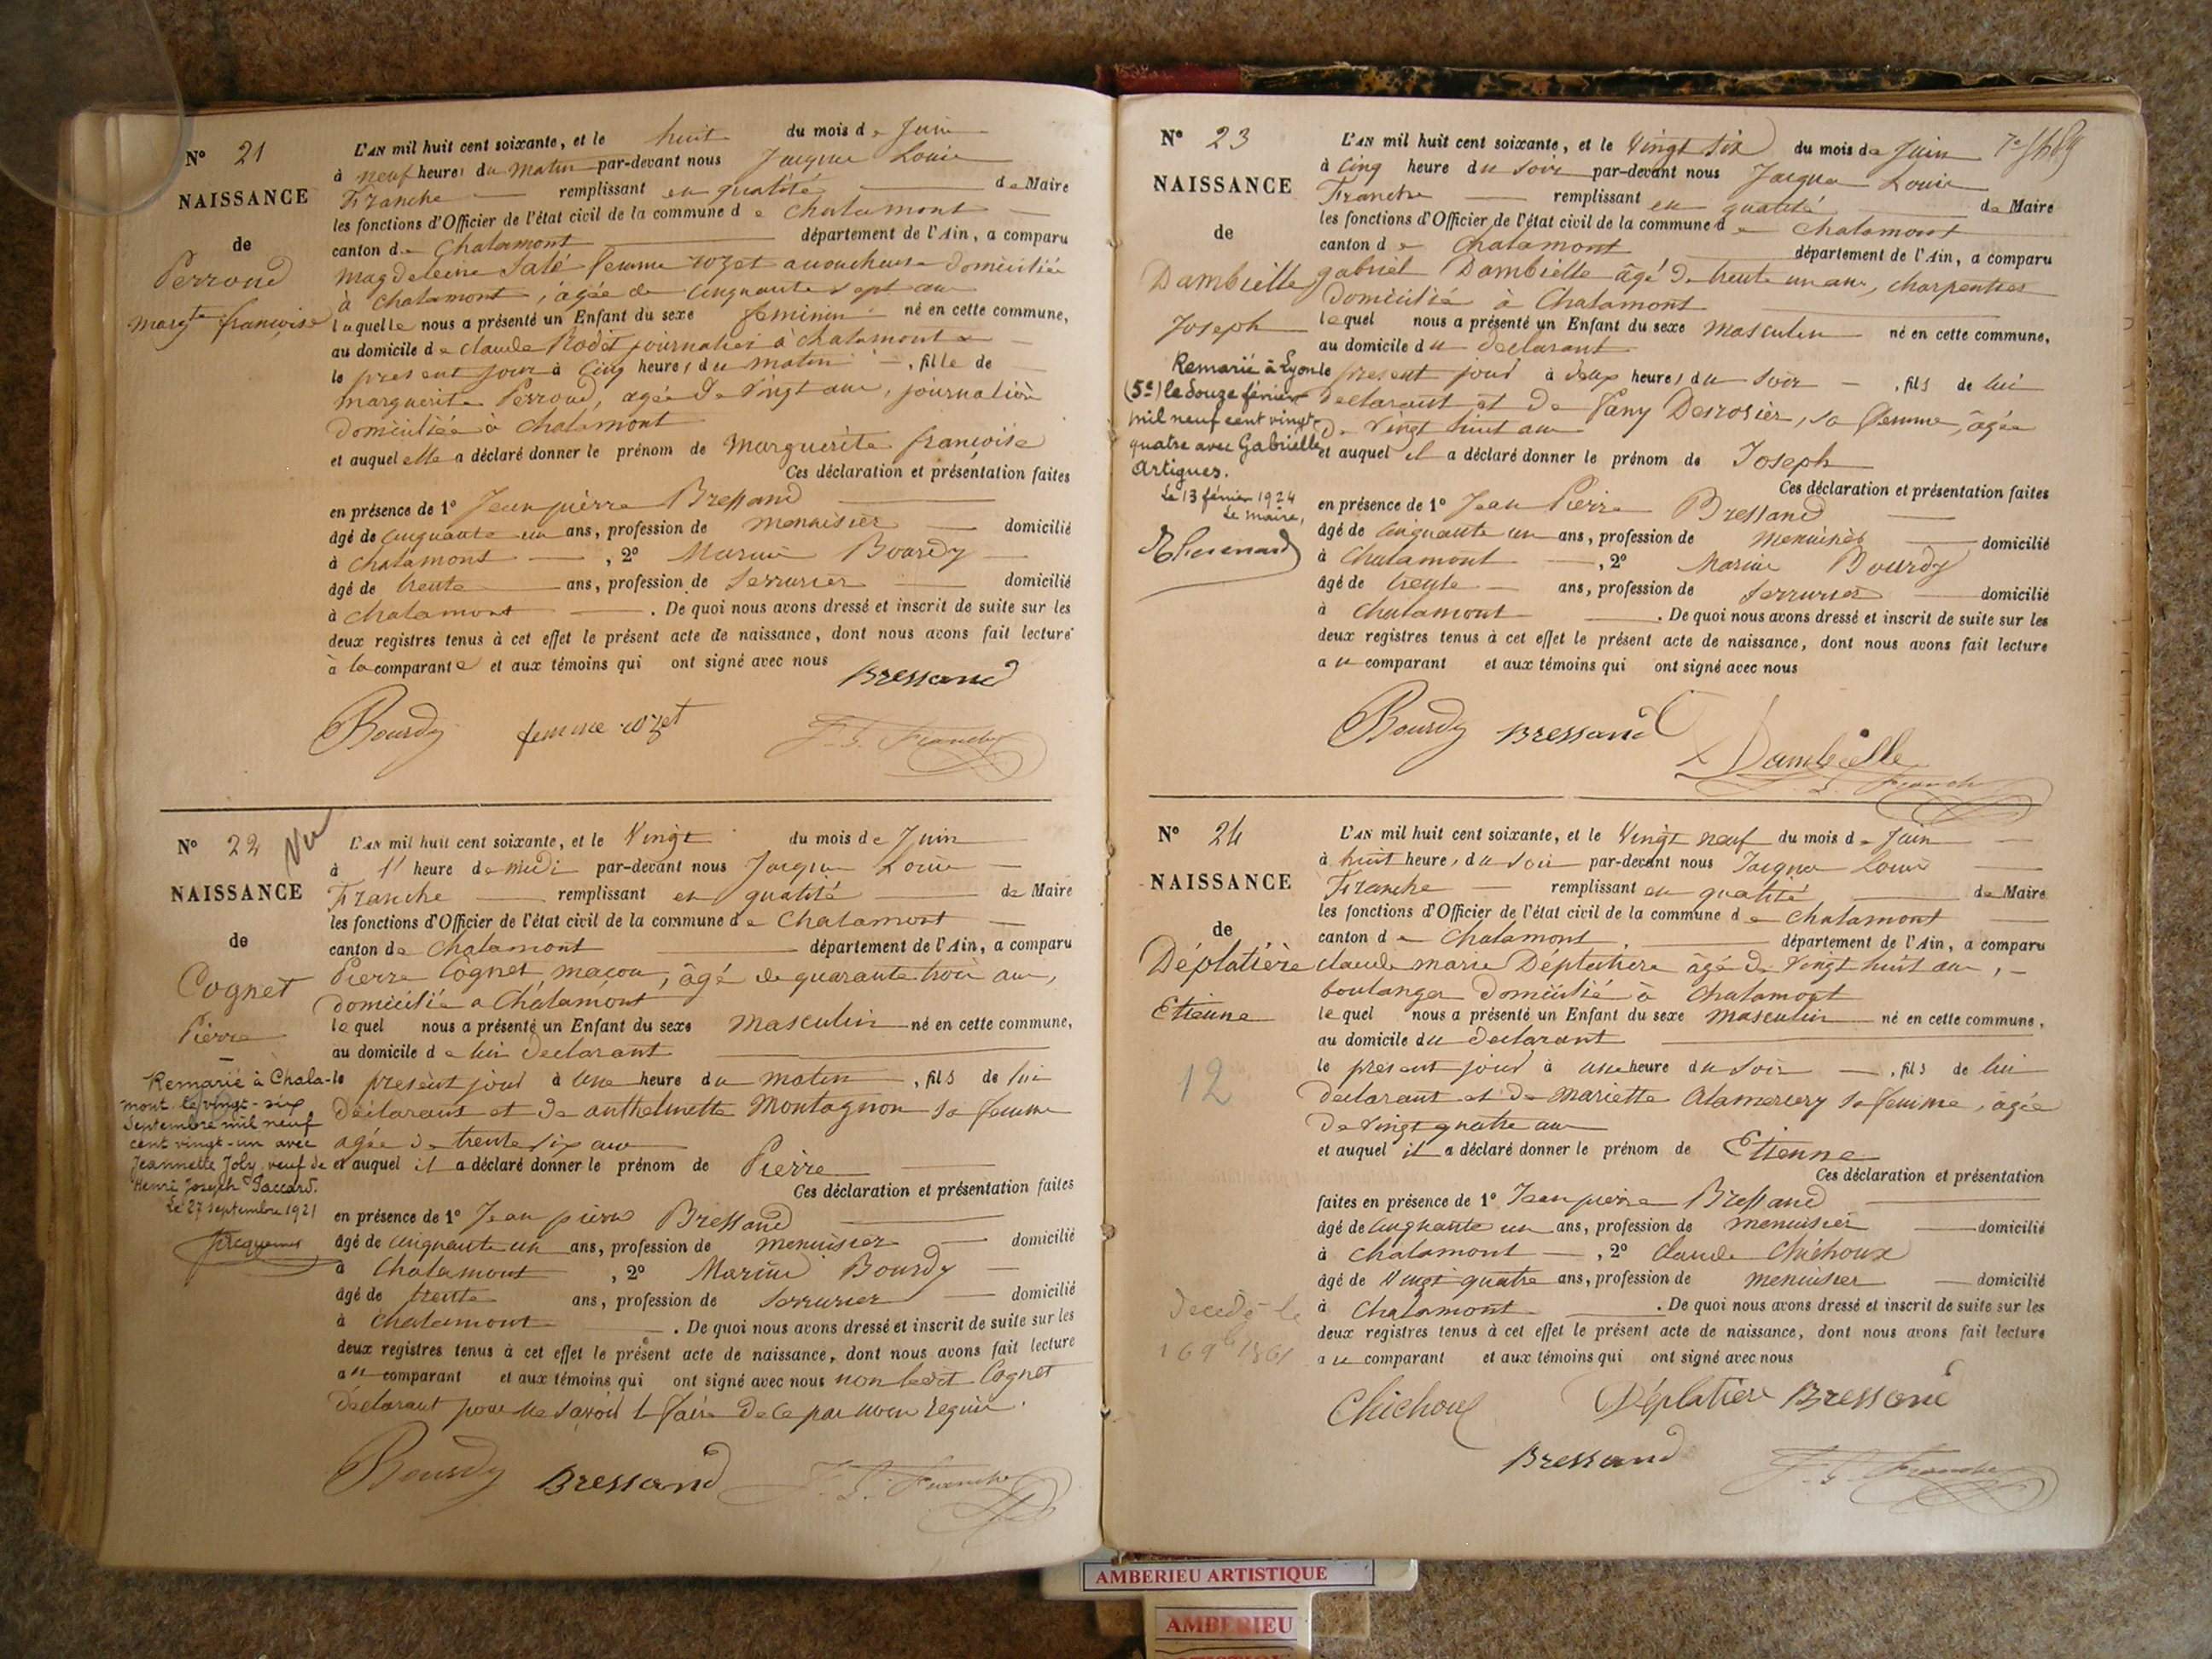 N° 21
NAISSANCE
de
Perroud
Margte françoise
L'AN mil huit cent soixante, et le huit du mois de Juin
à neuf heures du matin par-devant nous Jacques Louis
Franche remplissant en qualité de Maire
les fonctions d'Officier de l'état civil de la commune de Chalamont
canton de Chalamont département de l'Ain, a comparu
Magdeleine femme rozet accoucheuse domiciliée
à Chalamont, âgée de cinquante sept ans
laquelle nous a présenté un Enfant du sexe féminin né en cette commune,
au domicile de claude Rodet journalier à chalamont
le present jour à Cinq heures du matin, fille de
marguerite Perroud, agée de vingt ans, journalière
domiciliée à chalamont
et auquel elle a déclaré donner le prénom de Marguerite françoise
Ces déclaration et présentation faites
en présence de 1° Jean pierre Bressand
âgé de cinquante un ans, profession de menuisier domicilié
à Chalamont, 2° Marius Bourdy
âgé de trente ans, profession de serrurier domicilié
à Chalamont. De quoi nous avons dressé et inscrit de suite sur les
deux registres tenus à cet effet le présent acte de naissance, dont nous avons fait lecture
à la comparante et aux témoins qui ont signé avec nous
Bressand
Bourdy femme rozet J. L. Franche
N° 22
Vu
NAISSANCE
de
Cognet
Pierre
Remarié à Chala-
mont le vingt-six
Septembre mil neuf
cent vingt-un avec
Jeannette Joly veuf de
Henri Joseph Jaccard.
Le 27 septembre 1921
L'AN mil huit cent soixante, et le Vingt du mois de Juin
à l' heure de midi par-devant nous Jacques Louis
Franche remplissant en qualité de Maire
les fonctions d'Officier de l'état civil de la commune de Chalamont
canton de Chalamont département de l'Ain, a comparu
Pierre Cognet, maçon, âgé de quarante trois ans,
domicilié a Chalamont
lequel nous a présenté un Enfant du sexe Masculin né en cette commune,
au domicile de lui declarant
le present jour à une heure du matin, fils de lui
déclarant et de anthelmette Montagnon sa femme
agée de trente six ans
et auquel il a déclaré donner le prénom de Pierre
Ces déclaration et présentation faites
en présence de 1° Jean pierre Bressand
âgé de cinquante un ans, profession de menuisier domicilié
à Chalamont, 2° Marius Bourdy
âgé de trente ans, profession de serrurier domicilié
à Chalamont. De quoi nous avons dressé et inscrit de suite sur les
deux registres tenus à cet effet le présent acte de naissance, dont nous avons fait lecture
au comparant et aux témoins qui ont signé avec nous non ledit Cognet
déclarant pour ne savoir le faire de ce par nous requis.
Bourdy Bressand J. L. Franche
N° 23
NAISSANCE
de
Dambielle
Joseph
Remarié à Lyon
(5e) le douze février
mil neuf cent vingt-
quatre avec Gabrielle
Artigues.
Le 13 février 1924
Le maire,
L'AN mil huit cent soixante, et le Vingt six du mois de Juin
à cinq heure du soir par-devant nous Jacques Louis
Franche remplissant en qualité de Maire
les fonctions d'Officier de l'état civil de la commune de Chalamont
canton de Chalamont département de l'Ain, a comparu
gabriel Dambielle âgé de trente un ans, charpentier
domicilié à Chalamont
lequel nous a présenté un Enfant du sexe masculin né en cette commune,
au domicile du declarant
le present jour à deux heures du soir, fils de lui
declarant et de Fany Desrosier, sa femme, âgée
de vingt huit ans
et auquel il a déclaré donner le prénom de Joseph
Ces déclaration et présentation faites
en présence de 1° Jean Pierre Bressand
âgé de cinquante un ans, profession de menuisier domicilié
à Chalamont, 2° Marius Bourdy
âgé de trente ans, profession de serrurier domicilié
à Chalamont. De quoi nous avons dressé et inscrit de suite sur les
deux registres tenus à cet effet le présent acte de naissance, dont nous avons fait lecture
au comparant et aux témoins qui ont signé avec nous
Bourdy Bressand
Dambielle
J. L. Franche
N° 24
NAISSANCE
de
Déplatière
Etienne
12
Decedé le
L'AN mil huit cent soixante, et le Vingt neuf du mois de Juin
à huit heures du soir par-devant nous Jacques Louis
Franche remplissant en qualité de Maire
les fonctions d'Officier de l'état civil de la commune de Chalamont
canton de Chalamont, département de l'Ain, a comparu
claude marie Déplatiere âgé de vingt huit ans,
boulanger domicilié à Chalamont
lequel nous a présenté un Enfant du sexe masculin né en cette commune,
au domicile du declarant
le present jour à une heure du soir, fils de lui
declarant et de Mariette Alamercery sa femme, âgée
de vingt quatre ans
et auquel il a déclaré donner le prénom de Etienne
Ces déclaration et présentation
faites en présence de 1° Jean pierre Bressand
âgé de cinquante un ans, profession de menuisier domicilié
à Chalamont, 2° Claude Chichoux
âgé de Vingt quatre ans, profession de menuisier domicilié
à Chalamont. De quoi nous avons dressé et inscrit de suite sur les
deux registres tenus à cet effet le présent acte de naissance, dont nous avons fait lecture
au comparant et aux témoins qui ont signé avec nous
Chichoux Déplatière Bressand
Bressand J. L. Franche
AMBERIEU ARTISTIQUE
AMBERIEU